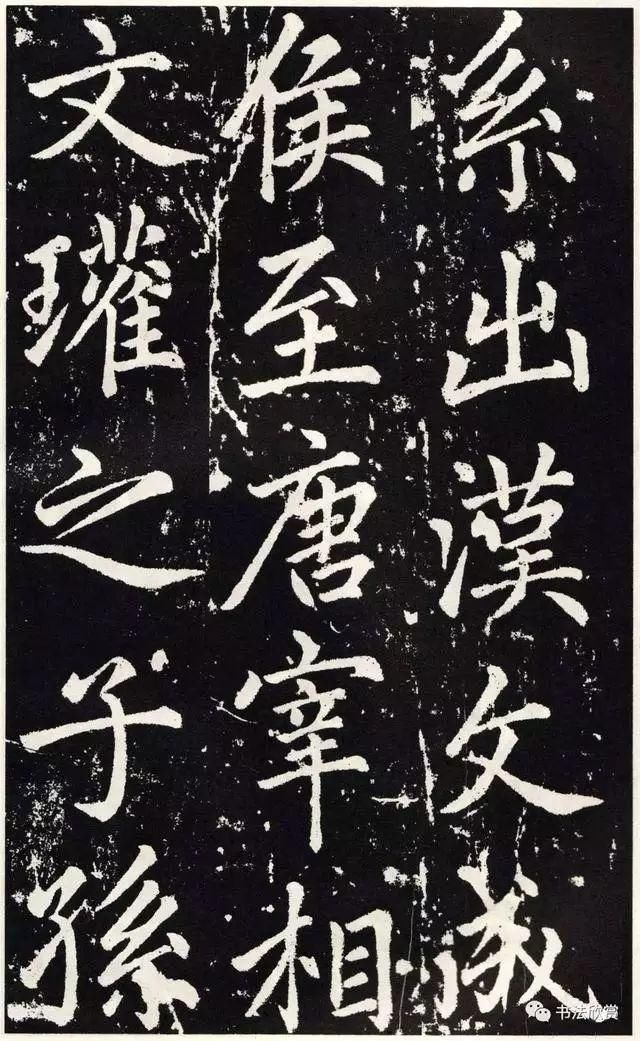 系出漢文成
侯至唐宰相
文瓘之子孫
书法欣赏